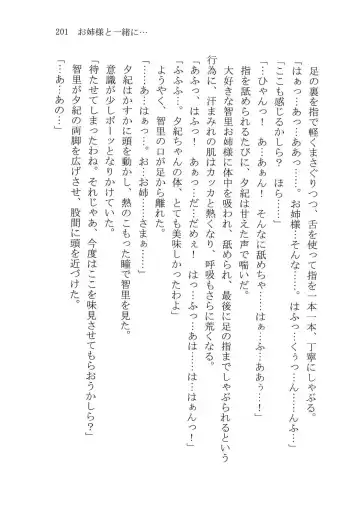 201　お姉様と一緒に…
足の裏を指で軽くまさぐりつつ、舌を使って指を一本一本、丁寧にしゃぶる。
「はぁっ…あっ…ああっ…。お姉様…そんな……。はふっ…くぅっ…ん…んふ…」
「ここも感じるかしら？　ほら……」
「…ひゃんっ！　あ…あぁん！　そんなに舐めちゃ……はぁ…ふ…ああぅ…！」
指を舐められるたびに、夕紀は甘えた声で喘いだ。
大好きな智里お姉様に体中を吸われ、舐められ、最後に足の指までしゃぶられるという
行為に、汗まみれの肌はカッカと熱くなり、呼吸もさらに荒くなる。
「あふぅ…はふっ！　あぁっ…だ…だめぇ！　はっ…ふっ…あは……は…はぁんっ！」
「ふふふ…。夕紀ちゃんの体、とても美味しかったわよ」
ようやく、智里の口が足から離れた。
「……あ…はぁっ…。お…お姉…さまぁ……」
夕紀はかすかに頭を動かし、熱のこもった瞳で智里を見た。
意識が少しボーッとなりかけていた。
「待たせてしまったわね。それじゃあ、今度はここを味見させてもらおうかしら？」
智里が夕紀の両脚を広げさせ、股間に頭を近づけた。
「…あ…あの…」